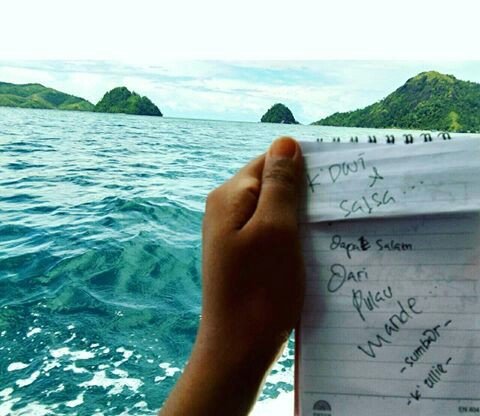 K Dwi
&
Salsa ...
Dapat Salam
Dari
Pulau
Mande
- sumbar -
- K' ollie -
EN 404